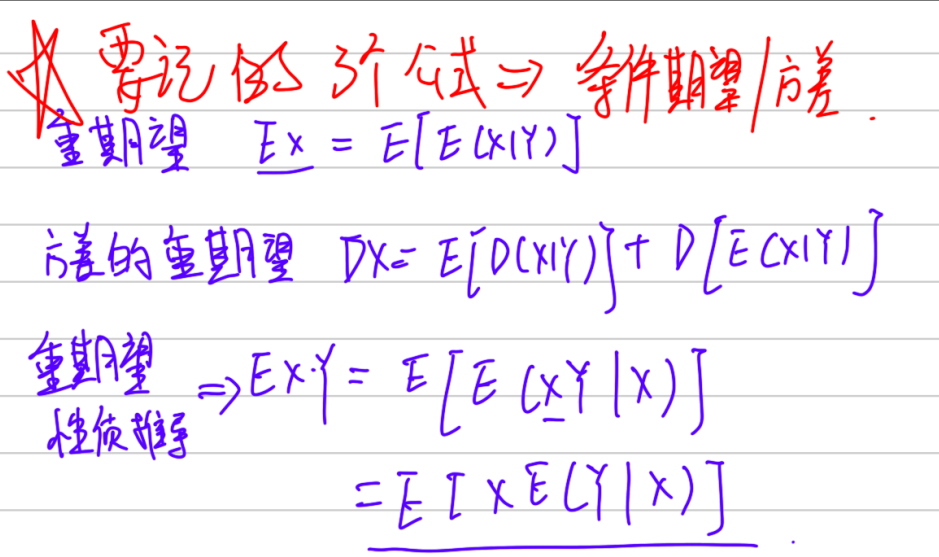 要记的3个公式⇒条件期望/方差.
重期望 EX = E[E(X|Y)]
方差的重期望 DX= E[D(X|Y)] + D[E(X|Y)]
重期望
性质推导 ⇒ EX·Y = E[E(XY|X)]
= E[XE(Y|X)].